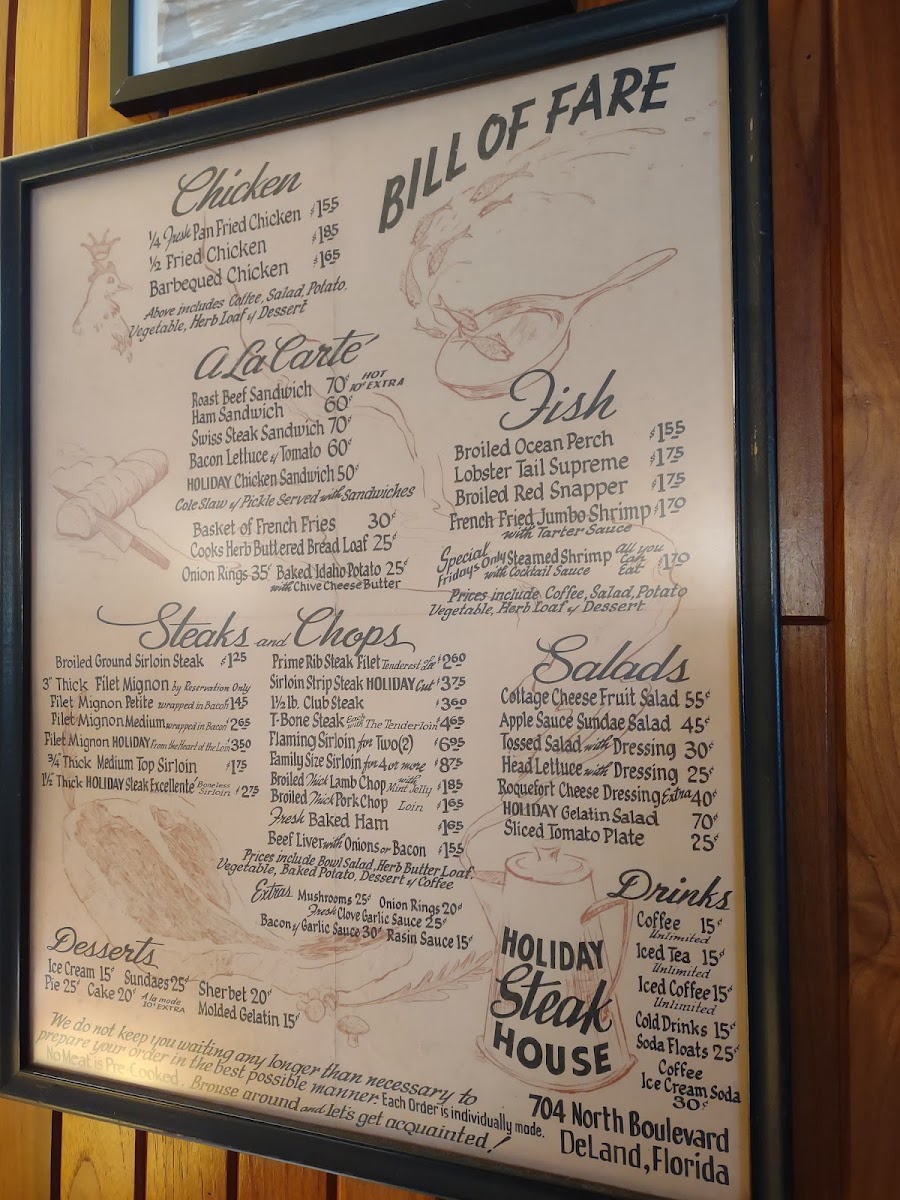 BILL OF FARE
Chicken
1/4 Fresh Pan Fried Chicken $1.55
1/2 Fried Chicken $1.85
Barbequed Chicken $1.65
Above includes Coffee, Salad, Potato,
Vegetable, Herb Loaf & Dessert
A La Carte'
Roast Beef Sandwich 70¢ HOT 10¢ EXTRA
Ham Sandwich 60¢
Swiss Steak Sandwich 70¢
Bacon Lettuce & Tomato 60¢
HOLIDAY Chicken Sandwich 50¢
Cole Slaw & Pickle Served with Sandwiches
Basket of French Fries 30¢
Cooks Herb Buttered Bread Loaf 25¢
Onion Rings 35¢ Baked Idaho Potato 25¢
with Chive Cheese Butter
Fish
Broiled Ocean Perch $1.55
Lobster Tail Supreme $1.75
Broiled Red Snapper $1.75
French Fried Jumbo Shrimp $1.70
with Tarter Sauce
Special Fridays Only Steamed Shrimp with Cocktail Sauce All you Can Eat $1.70
Prices include Coffee, Salad, Potato
Vegetable, Herb Loaf & Dessert
Steaks and Chops
Broiled Ground Sirloin Steak $1.25
3" Thick Filet Mignon by Reservation Only
Filet Mignon Petite wrapped in Bacon $1.45
Filet Mignon Medium wrapped in Bacon $2.65
Filet Mignon HOLIDAY From the Heart of the Loin 3.50
3/4" Thick Medium Top Sirloin $1.75
1 1/2" Thick HOLIDAY Steak Excellenté Boneless Sirloin $2.75
Prime Rib Steak Filet Tenderest $2.60
Sirloin Strip Steak HOLIDAY Cut $3.75
1 1/2 lb. Club Steak $3.60
T-Bone Steak with The Tenderloin $4.65
Flaming Sirloin for Two (2) $6.95
Family Size Sirloin for 4 or more $8.75
Broiled Thick Lamb Chop with Mint Jelly $1.85
Broiled Thick Pork Chop Loin $1.65
Fresh Baked Ham $1.65
Beef Liver with Onions or Bacon $1.55
Prices include Bowl Salad, Herb Butter Loaf,
Vegetable, Baked Potato, Dessert & Coffee
Extras Mushrooms 25¢ Onion Rings 20¢
Fresh Clove Garlic Sauce 25¢
Bacon & Garlic Sauce 30¢ Rasin Sauce 15¢
Salads
Cottage Cheese Fruit Salad 55¢
Apple Sauce Sundae Salad 45¢
Tossed Salad with Dressing 30¢
Head Lettuce with Dressing 25¢
Roquefort Cheese Dressing Extra 40¢
HOLIDAY Gelatin Salad 70¢
Sliced Tomato Plate 25¢
Drinks
Coffee 15¢
Unlimited
Iced Tea 15¢
Unlimited
Iced Coffee 15¢
Unlimited
Cold Drinks 15¢
Soda Floats 25¢
Coffee
Ice Cream Soda
30¢
Desserts
Ice Cream 15¢ Sundaes 25¢
Pie 25¢ Cake 20¢ A la mode 10¢ EXTRA
Sherbet 20¢
Molded Gelatin 15¢
We do not keep you waiting any longer than necessary to
prepare your order in the best possible manner. Each Order is individually made.
No Meat is Pre-Cooked. Brouse around and let's get acquainted!
HOLIDAY
Steak
HOUSE
704 North Boulevard
DeLand, Florida